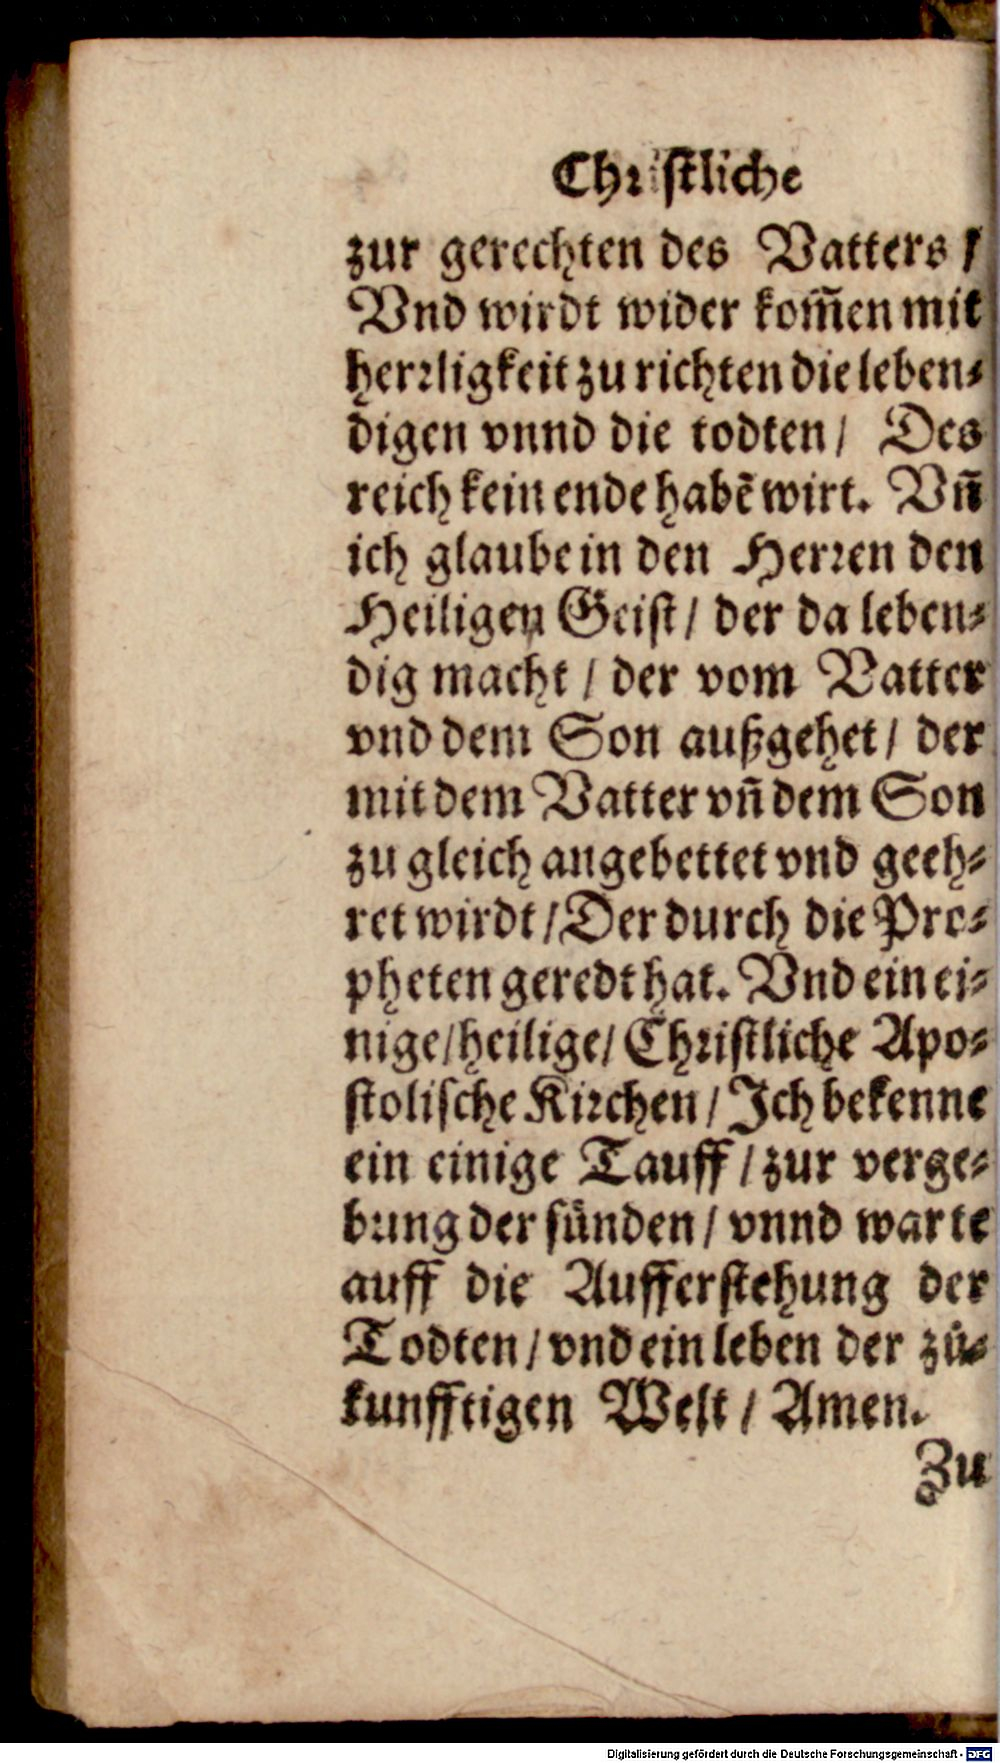 Christliche
zur gerechten des Vatters /
Vnd wirdt wider kom̃en mit
herrligkeit zu richten die leben⸗
digen vnnd die todten / Des
reich kein ende habẽ wirt. Vñ
ich glaube in den Herren den
Heiligen Geist / der da leben⸗
dig macht / der vom Vatter
vnd dem Son außgehet / der
mit dem Vatter vñ dem Son
zu gleich angebettet vnd geeh⸗
ret wirdt / Der durch die Pro⸗
pheten geredt hat. Vnd ein ei⸗
nige / heilige / Christliche Apo⸗
stolische Kirchen / Ich bekenne
ein einige Tauff / zur verge⸗
bung der sünden / vnnd warte
auff die Aufferstehung der
Todten / vnd ein leben der zů⸗
kunfftigen Welt / Amen.
Zu
Digitalisierung gefördert durch die Deutsche Forschungsgemeinschaft - DFG